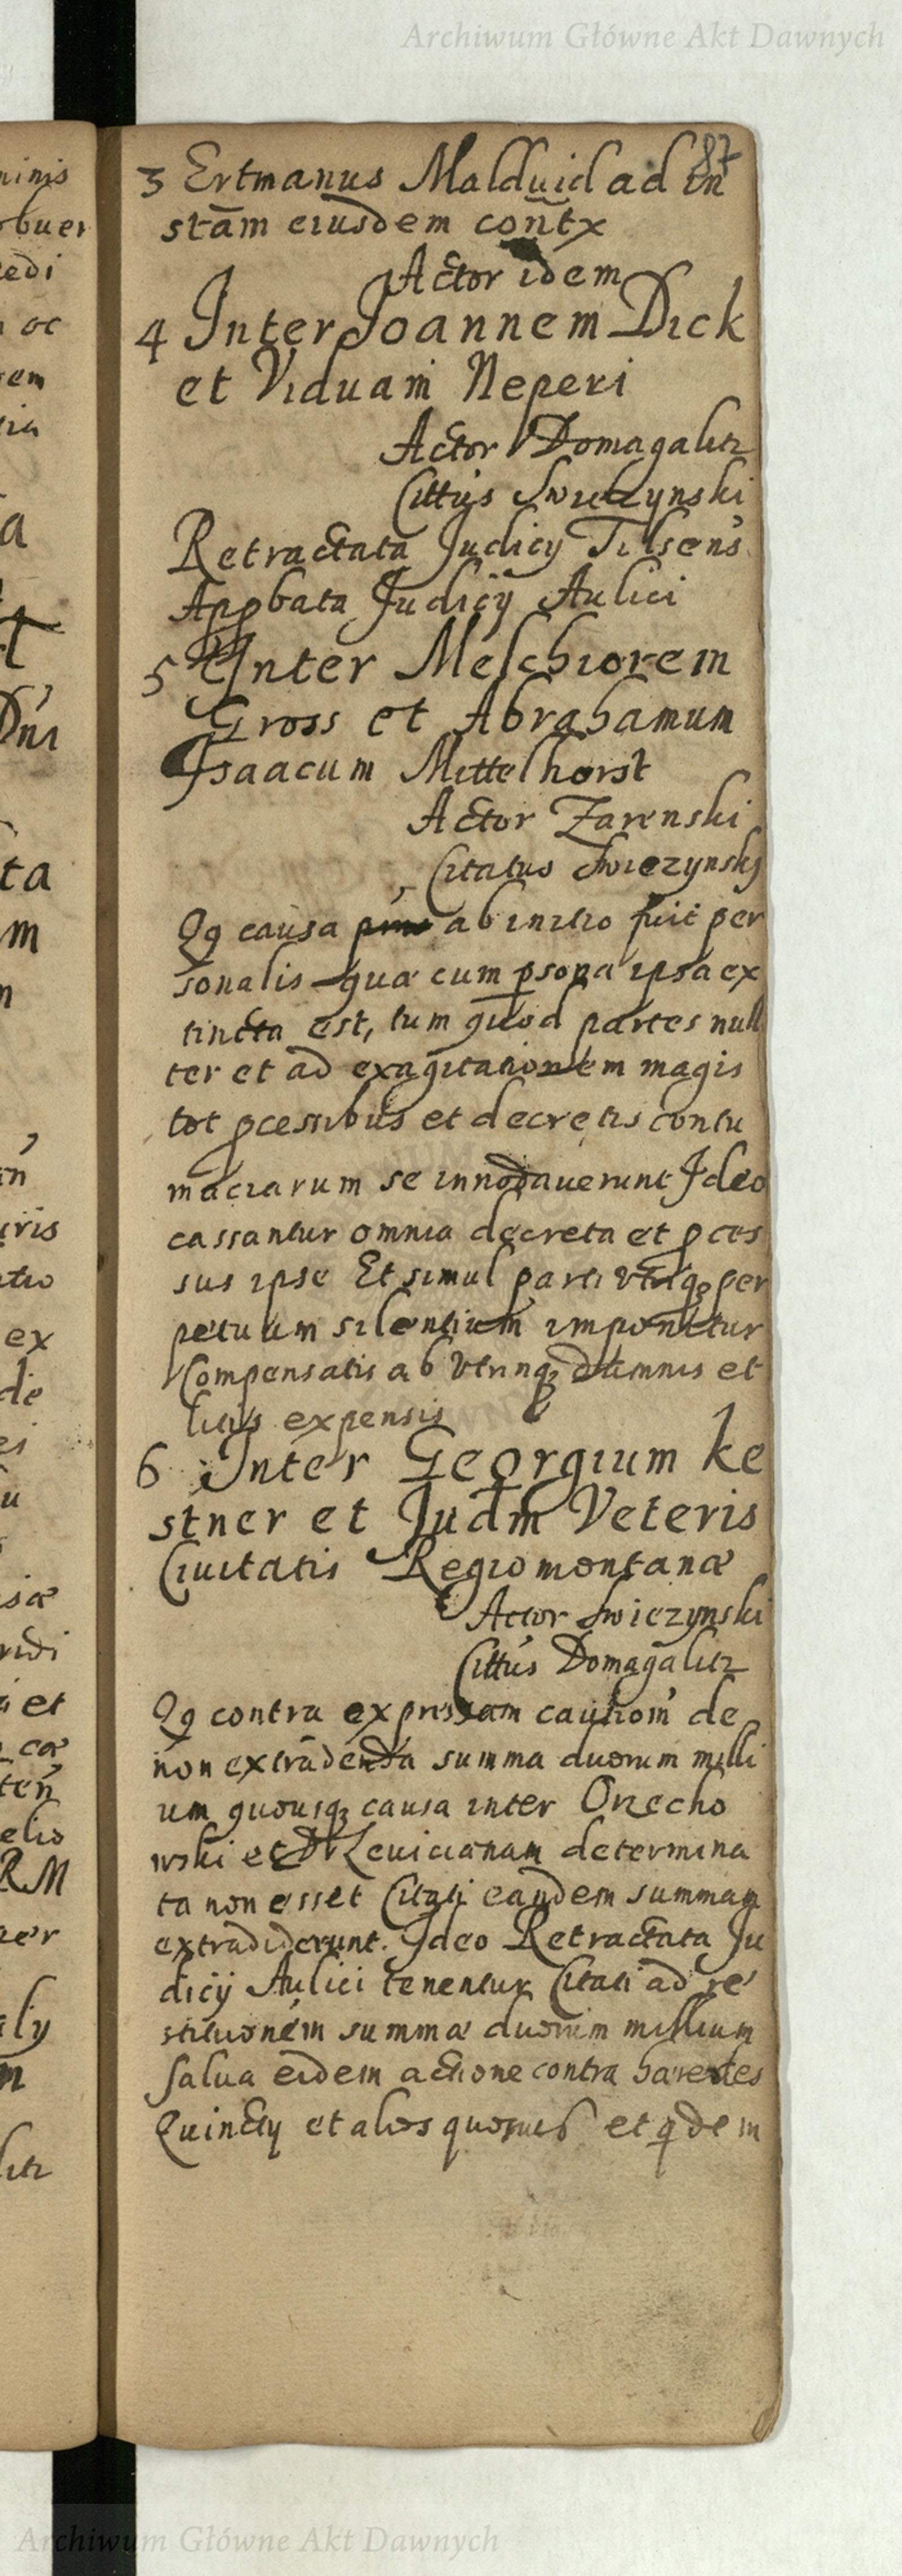 Archiwum Główne Akt Dawnych
87
3 Ertmanus Malduid ad in
stam eiusdem contx
Actor idem
4 Inter Joannem Dick
et Viduam Neperi
Actor Domagalitz
Cittus Swiezynski
Retractata Judicy Tilsens
Appbata Judicy Aulici
5 Inter Melchiorem
Gross et Abrahamum
Isaacum Mittelhorst
Actor Zarenski
Citatus Swiezynski
Qq causa ab initio fuit per
sonalis quæ cum psona ipsa ex
tincta est, tum quod partes null
ter et ad exagitationem magis
tot pcessibus et decretis contu
maciarum se innodauerunt Ideo
cassantur omnia decreta et pces
sus ipse Et simul parti vtriq3 per
petuum silentium imponitur
Compensatis ab vtrinq3 damnis et
litis expensis
6 Inter Georgium Ke
stner et Judm Veteris
Ciuitatis Regiomontanæ
Actor Swiezynski
Cittus Domagalitz
Qq contra expressam cautiom de
non extradenda summa duorum milli
um quousq3 causa inter Orzecho
wski et Leuicianam determina
ta non esset Citati eandem summam
extradiderunt. Ideo Retractata Ju
dicij Aulici tenentur Citati ad re
stitutionem summæ duorum millium
salua eidem actione contra hæredes
Quinctij et alios et qdem
ninis
buer
edi
oc
em
ia
a
Dni
ta
m
uris
atio
ex
de
u
isæ
ridi
et
cæ
ten
elio
RM
er
ly
litz
Archiwum Główne Akt Dawnych